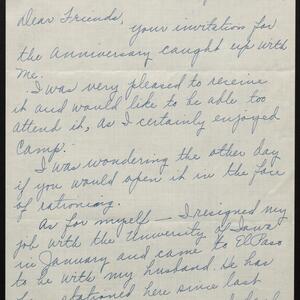 Dear Friends,
your invitation for
the Anniversary caught up with
me.
I was very pleased to receive
it and would like to be able too
attend it, as I certainly enjoyed
Camp.
I was wondering the other day
if you would open it in the face
of rationing.
As for myself — I resigned my
job with the University of Iowa
in January and came to El Paso
to be with my husband. He has
been stationed here since last